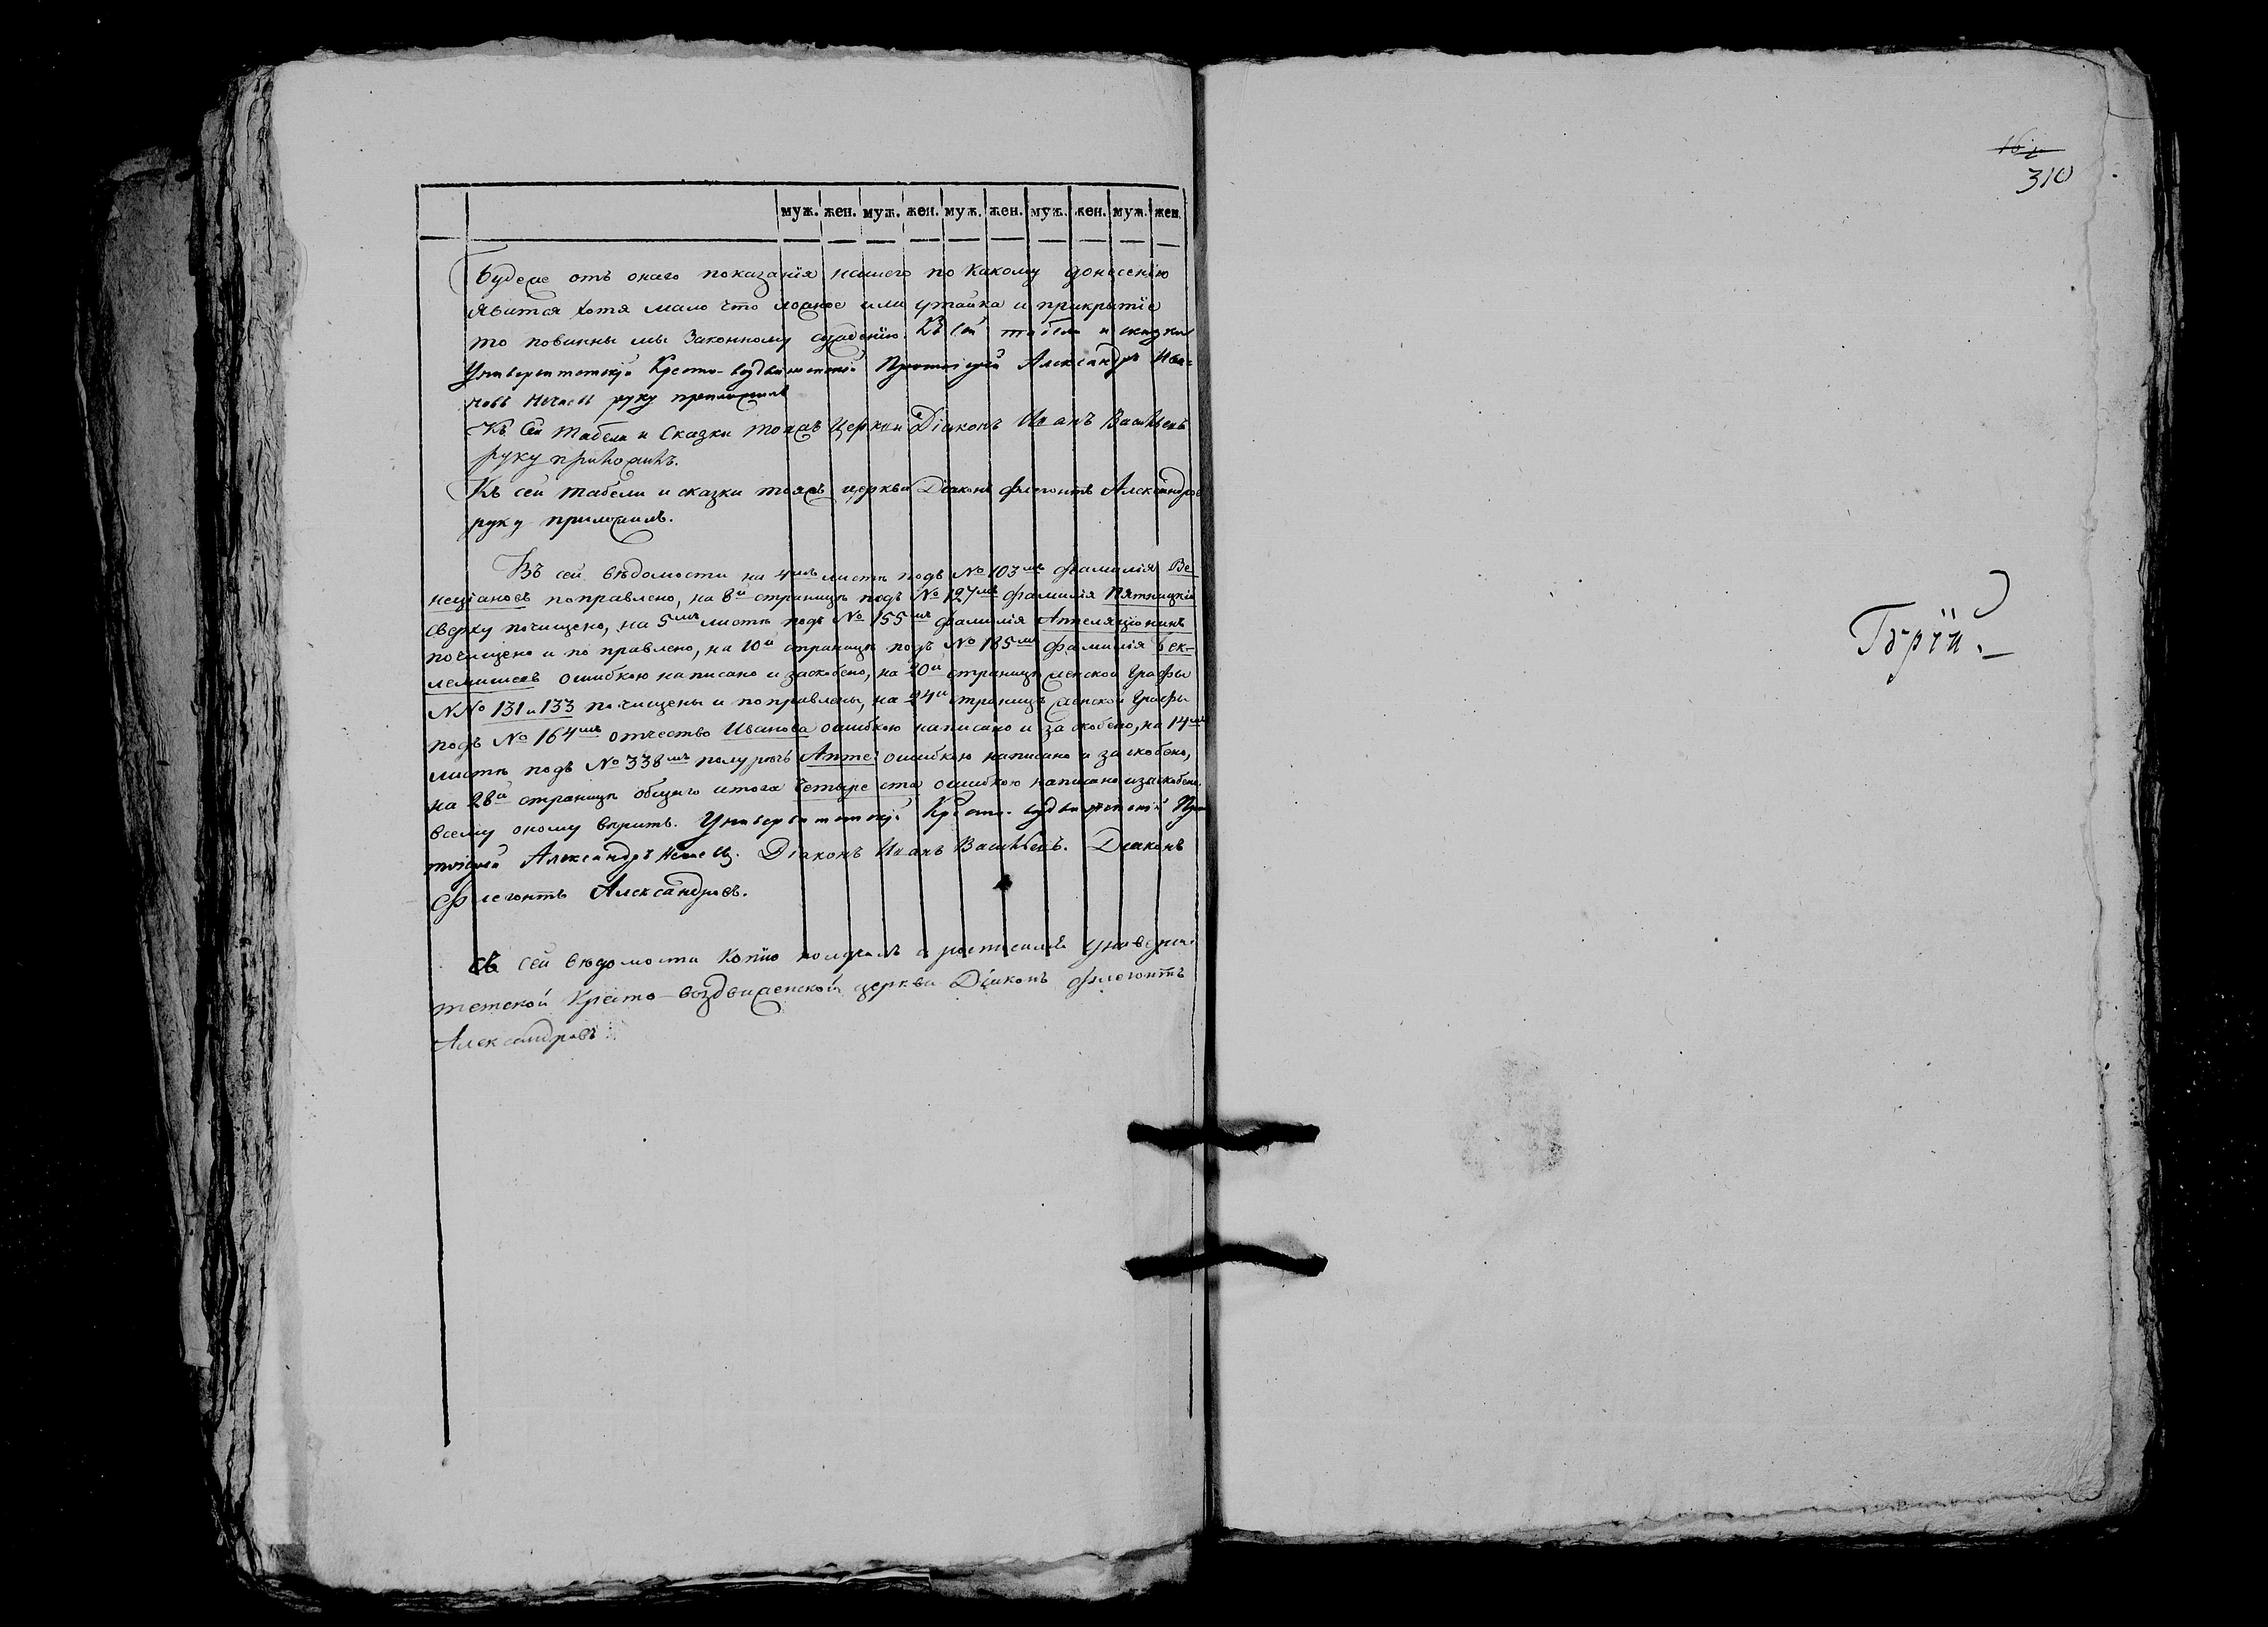 муж. жен. муж. жен. муж. жен. муж. жен. муж. жен.
Будеже отъ онаго показанія нашего по какому донесенію
явится хотя мало что ложное или утайка и прикрытіе
то повинны мы Законному сужденію. Къ сей табели и сказки
Университетскій Кресто-воздвиженскій Протоіерей Александръ Ива-
новъ руку приложилъ
Къ Сей Табели и Сказки тояжъ Церкви Діаконъ Иванъ Васильевъ
руку приложилъ.
Къ сей табели и сказки тояжъ церкви Діаконъ Флегонтъ Александровъ
руку приложилъ.
Въ сей вѣдомости на 4мъ листѣ подъ № 103мъ фамилія Ве-
неціановъ поправлено, на 8й страницѣ подъ № 127мъ фамилія Пятницкій
сверху почищено, на 5мъ листѣ подъ № 155мъ фамилія Аппеляціонинъ
почищено и по правлено, на 10й страницѣ подъ № 185мъ фамилія Бек-
лемишевъ ошибкою написано и заскобено, на 20й страницѣ женской Графы
NNo 131 и 133 почищены и поправлены, на 24й страницѣ женской Графы
подъ № 164мъ отчество Иванова ошибкою написано и заскобено, на 14мъ
листѣ подъ № 338мъ полурѣчь Апте ошибкою написано и заскобено,
на 28й страницѣ общаго итога четыре ста ошибкою написано и заскобено.
всему оному вѣрить. Университетскій Кресто-воздвиженскій Про
тоіерей Александръ Діаконъ Иванъ Васильевъ. Діаконъ
Флегонтъ Александровъ.
Съ сей вѣдомости Копію получилъ и росписался Университ
тетской Кресто-воздвиженской церкви Діаконъ Флегонтъ
Александровъ
310